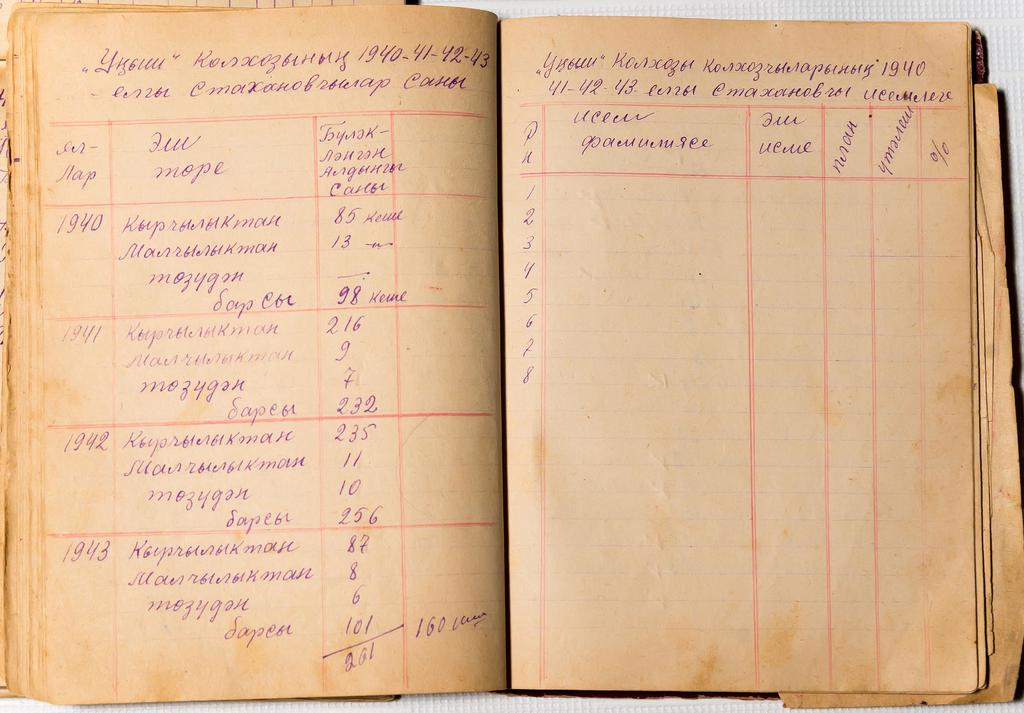 „Уңыш“ Колхозының 1940-41-42-43
елгы Стахановчылар Саны
ел-
лар
Эш
төре
Бүләк-
ләнгән
Алдынгы
Саны
1940 Кырчылыктан 85 кеше
Малчылыктан 13 -„-
төзүдән —
барсы 98 кеше
1941 Кырчылыктан 216
Малчылыктан 9
төзүдән 7
барсы 232
1942 Кырчылыктан 235
Малчылыктан 11
төзүдән 10
барсы 256
1943 Кырчылыктан 87
Малчылыктан 8
төзүдән 6
барсы 101 160
261
„Уңыш“ Колхозы Колхозчыларының 1940
41-42-43 елгы Стахановчы исемлеге
Р
н
исем
фамилиясе
эш
исме
план
үтәлеш
%
1
2
3
4
5
6
7
8